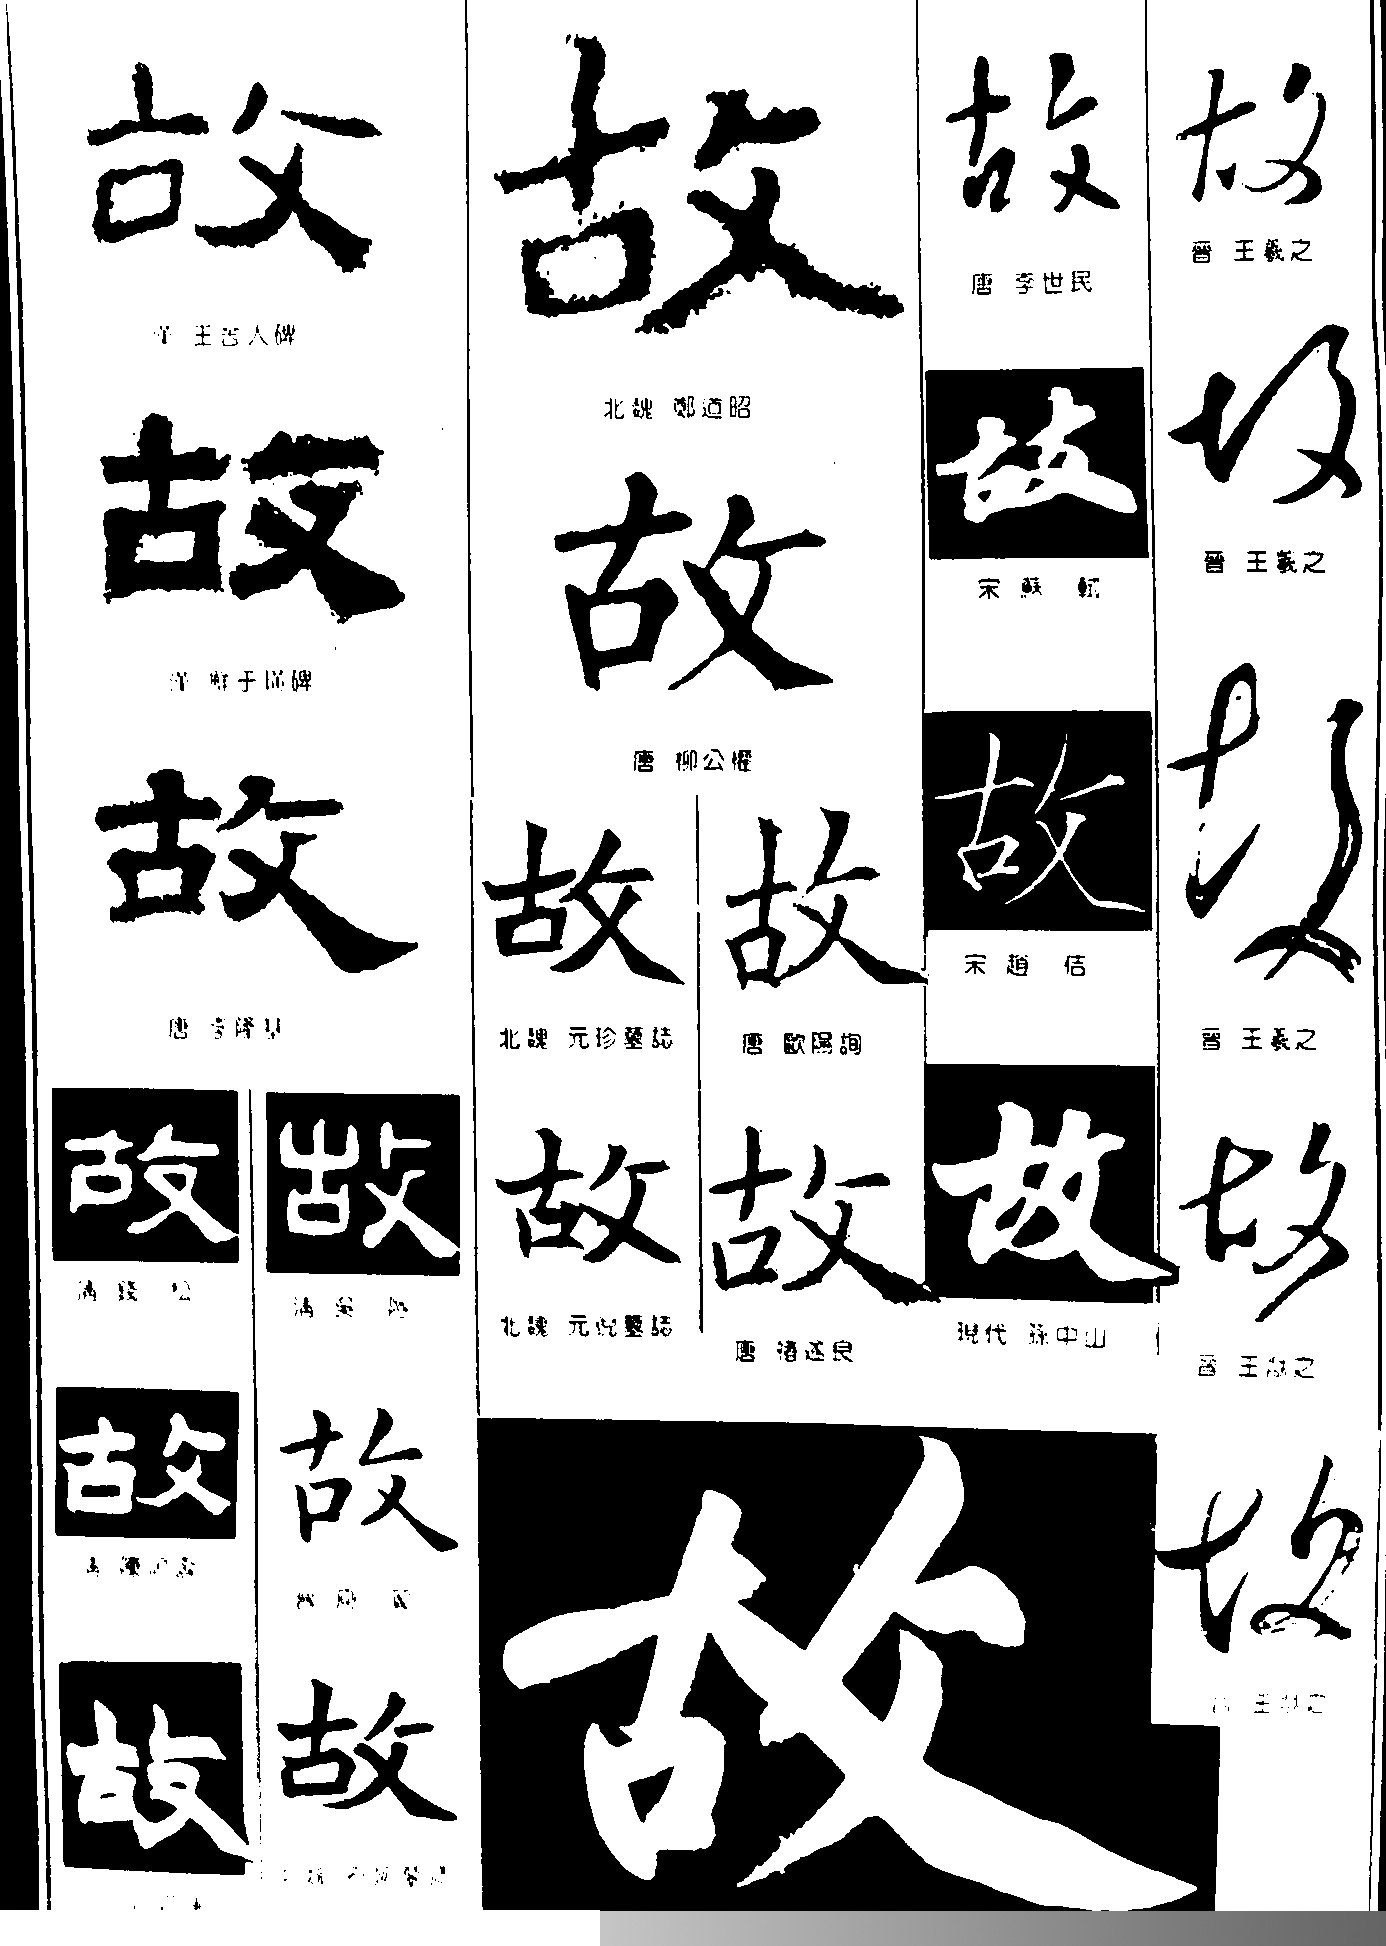 故
晉 王羲之
故
晉 王羲之
故
晉 王羲之
故
晉 王獻之
故
王獻之
故
唐 李世民
故
宋 蘇 軾
故
宋 趙 佶
故
現代 孫中山
故
北魏 鄭道昭
故
唐 柳公權
故
唐 歐陽詢
故
唐 褚遂良
故
北魏 元珍墓誌
故
北魏 元倪墓誌
故
故
漢 王舍人碑
故
漢 鮮于璜碑
故
唐 李隆基
故
清 吳
故
故
故
清 錢 松
故
清
故